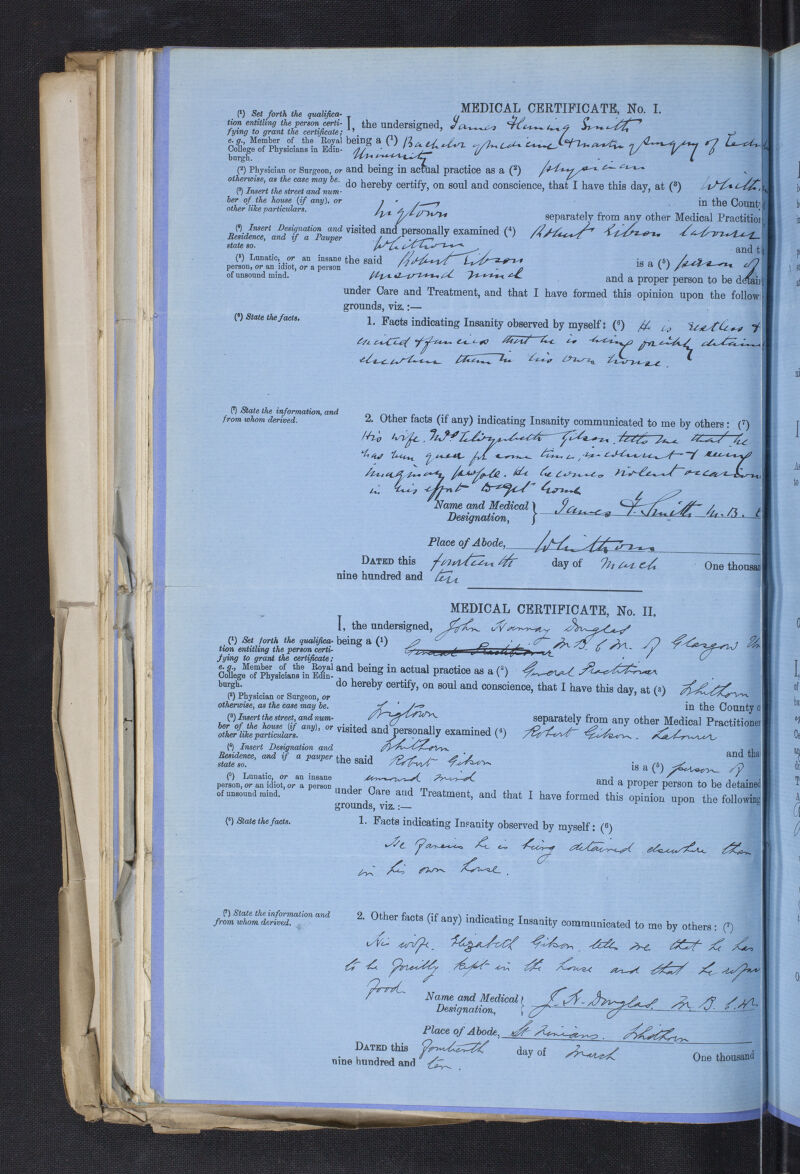 MEDICAL CERTIFICATE, No. I.
(¹) Set forth the qualifica-
tion entitling the person certi-
fying to grant the certificate;
e. g., Member of the Royal
College of Physicians in Edin-
burgh.
(²) Physician or Surgeon, or
otherwise, as the case may be.
(³) Insert the street and num-
ber of the house (if any), or
other like particulars.
(⁴) Insert Designation and
Residence, and if a Pauper
state so.
(⁵) Lunatic, or an insane
person, or an idiot, or a person
of unsound mind.
(⁶) State the facts.
I, the undersigned, James Fleming Smith
being a (¹) Bachelor of medicine & master of Surgery of Edin
University
and being in actual practice as a (²) physician
do hereby certify, on soul and conscience, that I have this day, at (³) Whith
in the County
Wigtown separately from any other Medical Practitio
visited and personally examined (⁴) Robert Gibson labourer
Whithorn and t
the said Robert Gibson is a (⁵) person of
unsound mind and a proper person to be detai
under Care and Treatment, and that I have formed this opinion upon the follow
grounds, viz.:—
1. Facts indicating Insanity observed by myself: (⁶) He is restless &
excited & fancies that he is being forcibly detaine
elsewhere than in his own house.
(⁷) State the information, and
from whom derived.
2. Other facts (if any) indicating Insanity communicated to me by others: (⁷)
His wife Mrs Elizabeth Gibson tells me that he
has been queer for some time, incoherent & seeing
imaginary people. He becomes violent occasion
in his effort to get home
Name and Medical
Designation, James F. Smith M.B.
Place of Abode, Whithorn
DATED this fourteenth day of March One thousa
nine hundred and ten
MEDICAL CERTIFICATE, No. II.
(¹) Set forth the qualifica-
tion entitling the person certi-
fying to grant the certificate;
e. g., Member of the Royal
College of Physicians in Edin-
burgh.
(²) Physician or Surgeon, or
otherwise, as the case may be.
(³) Insert the street, and num-
ber of the house (if any), or
other like particulars.
(⁴) Insert Designation and
Residence, and if a pauper
state so.
(⁵) Lunatic, or an insane
person, or an idiot, or a person
of unsound mind.
(⁶) State the facts.
I, the undersigned, John Hannay Douglas
being a (¹) General Practitioner M.B. C.M. of Glasgow Un
and being in actual practice as a (²) General Practitioner
do hereby certify, on soul and conscience, that I have this day, at (³) Whithorn
in the County o
Wigtown separately from any other Medical Practitioner
visited and personally examined (⁴) Robert Gibson. Labourer
Whithorn and tha
the said Robert Gibson is a (⁵) person of
unsound mind and a proper person to be detained
under Care and Treatment, and that I have formed this opinion upon the following
grounds, viz.:—
1. Facts indicating Insanity observed by myself: (⁶)
He fancies he is being detained elsewhere than
in his own house.
(⁷) State the information and
from whom derived.
2. Other facts (if any) indicating Insanity communicated to me by others: (⁷)
His wife. Elizabeth Gibson. tells me that he has
to be forcibly kept in the house and that he refuse
food.
Name and Medical
Designation, J. H. Douglas. M. B. C. M.
Place of Abode, St Ninians. Whithorn
DATED this fourteenth day of March One thousand
nine hundred and ten.